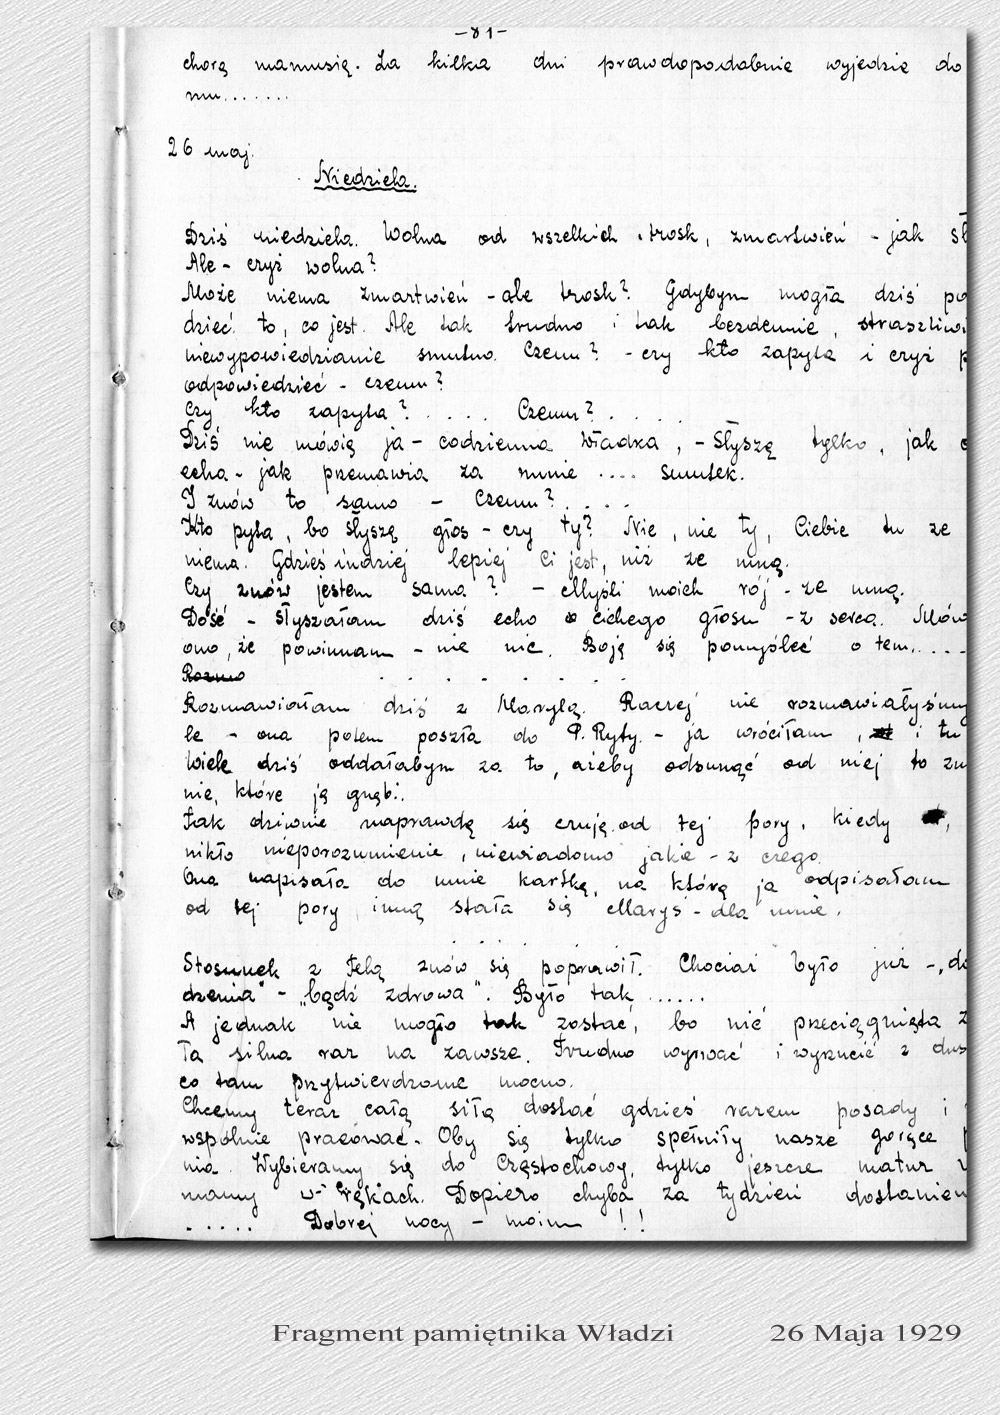 -81-
chorą mamusię. Za kilka dni prawdopodobnie wyjedzie do
mu.......
26 maj.
Niedziela.
Dziś niedziela. Wolna od wszelkich trosk, zmartwień - jak sł
Ale - czyż wolna?
Może niema zmartwień - ale trosk? Gdybym mogła dziś po
dzieć to, co jest. Ale tak trudno i tak bezdennie, straszliwi
niewypowiedzianie smutno. Czemu? - czy kto zapyta i czyż p
odpowiedzieć - czemu?
Czy kto zapyta? . . . . Czemu? . . .
Dziś nie mówię ja - codzienna Władka, - Słyszę tylko, jak
echa - jak przemawia za mnie .... smutek.
I znów to samo - Czemu? . . . .
Kto pyta, bo słyszę głos - czy ty? Nie, nie ty, Ciebie tu ze
niema. Gdzieś indziej lepiej Ci jest, niż ze mną.
Czy znów jestem sama? - Myśli moich rój - ze mną.
Dość - Słyszałam dziś echo cichego głosu - z serca. Mów
ono, że powinnam - nie nic. Boję się pomyśleć o tem.....
Rozmo . . . . . . .
Rozmawiałam dziś z Marylą. Raczej nie rozmawiałyśmy
le - ona potem poszła do P. Ryty. - ja wróciłam, i tu
Wiele dziś oddałabym za to, ażeby odsunąć od niej to zm
nie, które ją gnębi.
Tak dziwnie naprawdę się czuję od tej pory, kiedy ,
nikło nieporozumienie, niewiadomo jakie - z czego.
Ona napisała do mnie kartkę, na którą ja odpisałam
od tej pory inną stała się Maryś - dla mnie.
. . . . .
Stosunek z Felą znów się poprawił. Chociaż było już - „do
dzenia" - „bądź zdrowa". Było tak ......
A jednak nie mogło tak zostać, bo nić przeciągnięta z
Ta silna raz na zawsze. Trudno wyrwać i wyrzucić z dus
co tam przytwierdzone mocno.
Chcemy teraz całą siłą dostać gdzieś razem posady i
wspólnie pracować. Oby się tylko spełniły nasze gorące p
nia. Wybieramy się do Częstochowy, tylko jeszcze matur
mamy w rękach. Dopiero chyba za tydzień dostaniem
. . . . . Dobrej nocy - moim !!
Fragment pamiętnika Władzi 26 Maja 1929